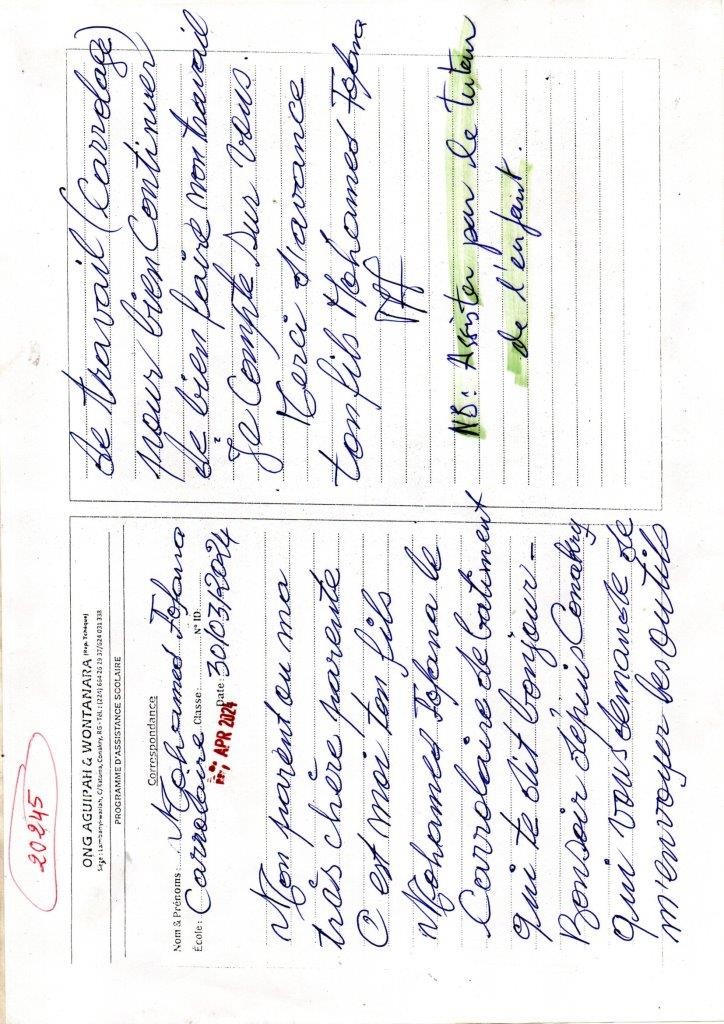 20245
ONG AGUIPAH & WONTANARA (Rep. Tchèque)
PROGRAMME D'ASSISTANCE SCOLAIRE
Correspondance
Nom & Prénoms : Mohamed Fofana
École : Carrolaire Classe : N° ID
APR 2024 Date : 30/03/2024
Mon parent ou ma
très chère parente
C'est moi ton fils
Mohamed Fofana le
Carrolaire de batiment
qui te dit bonjour -
Bonsoir depuis Conakry
qui vous demande de
m'envoyer les outils
de travail (Carrolage)
pour bien continuer
de bien faire mon travail
Je compte sur vous.
Merci d'avance
ton fils Mohamed Fofana
MF
NB : Assister par le tuteur
de l'enfant.